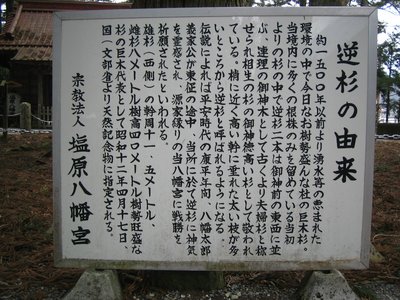 逆杉の由来
約一五〇〇年以前より湧水等の恵まれた
環境の中で今日なお樹勢盛んな杜の巨木杉。
当境内に多くの根株のみを留めている当初
よりの杉の中で逆杉二本は御神前の東西に並
ぶ、連理の御神木として古くより夫婦杉と称
せられ相生の杉の御神徳高い杉として敬われ
ている。梢に近く高い幹に垂れた太い枝が多
いところから逆杉と呼ばれるようになる。
伝説によれば平安時代の康平年間、八幡太郎
義家公が東征の途中、当所に於て逆杉に神気
を重感され、源家縁りの当八幡宮に戦勝を
祈願されたといわれる。
雄杉(西側)の幹周十一.五メートル、
雌杉八メートル樹高四〇メートル樹勢旺盛な
杉の巨木代表として昭和十二年四月十七日、
国、文部省より天然記念物に指定される。
宗教法人 塩原八幡宮